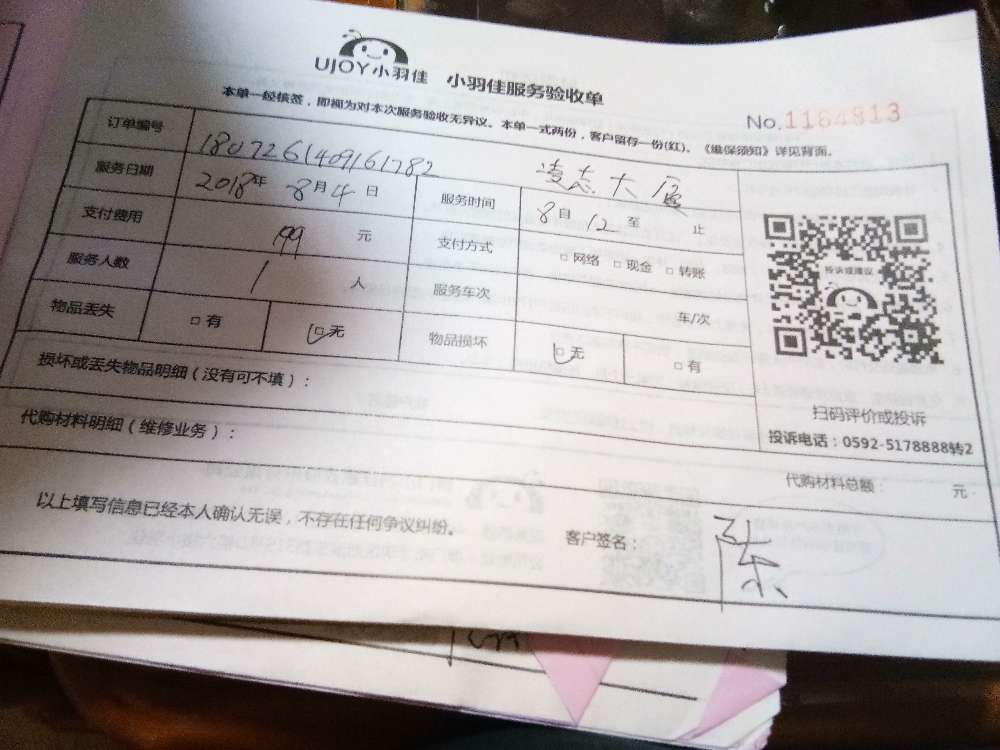 UJOY小羽佳 小羽佳服务验收单
No.1164813
本单一经核签，即视为对本次服务验收无异议。本单一式两份，客户留存一份(红)。《维保须知》详见背面。
订单编号 1807261409161782 凌志大厦
服务日期 2018年8月4日 服务时间 8自12至 止
支付费用 199 元 支付方式 □网络 □现金 □转账
服务人数 1 人 服务车次 车/次
物品丢失 □有 □无 物品损坏 □无 □有
投诉或建议
扫码评价或投诉
投诉电话：0592-5178888转2
损坏或丢失物品明细（没有可不填）：
代购材料明细（维修业务）：
代购材料总额： 元
以上填写信息已经本人确认无误，不存在任何争议纠纷。 客户签名：